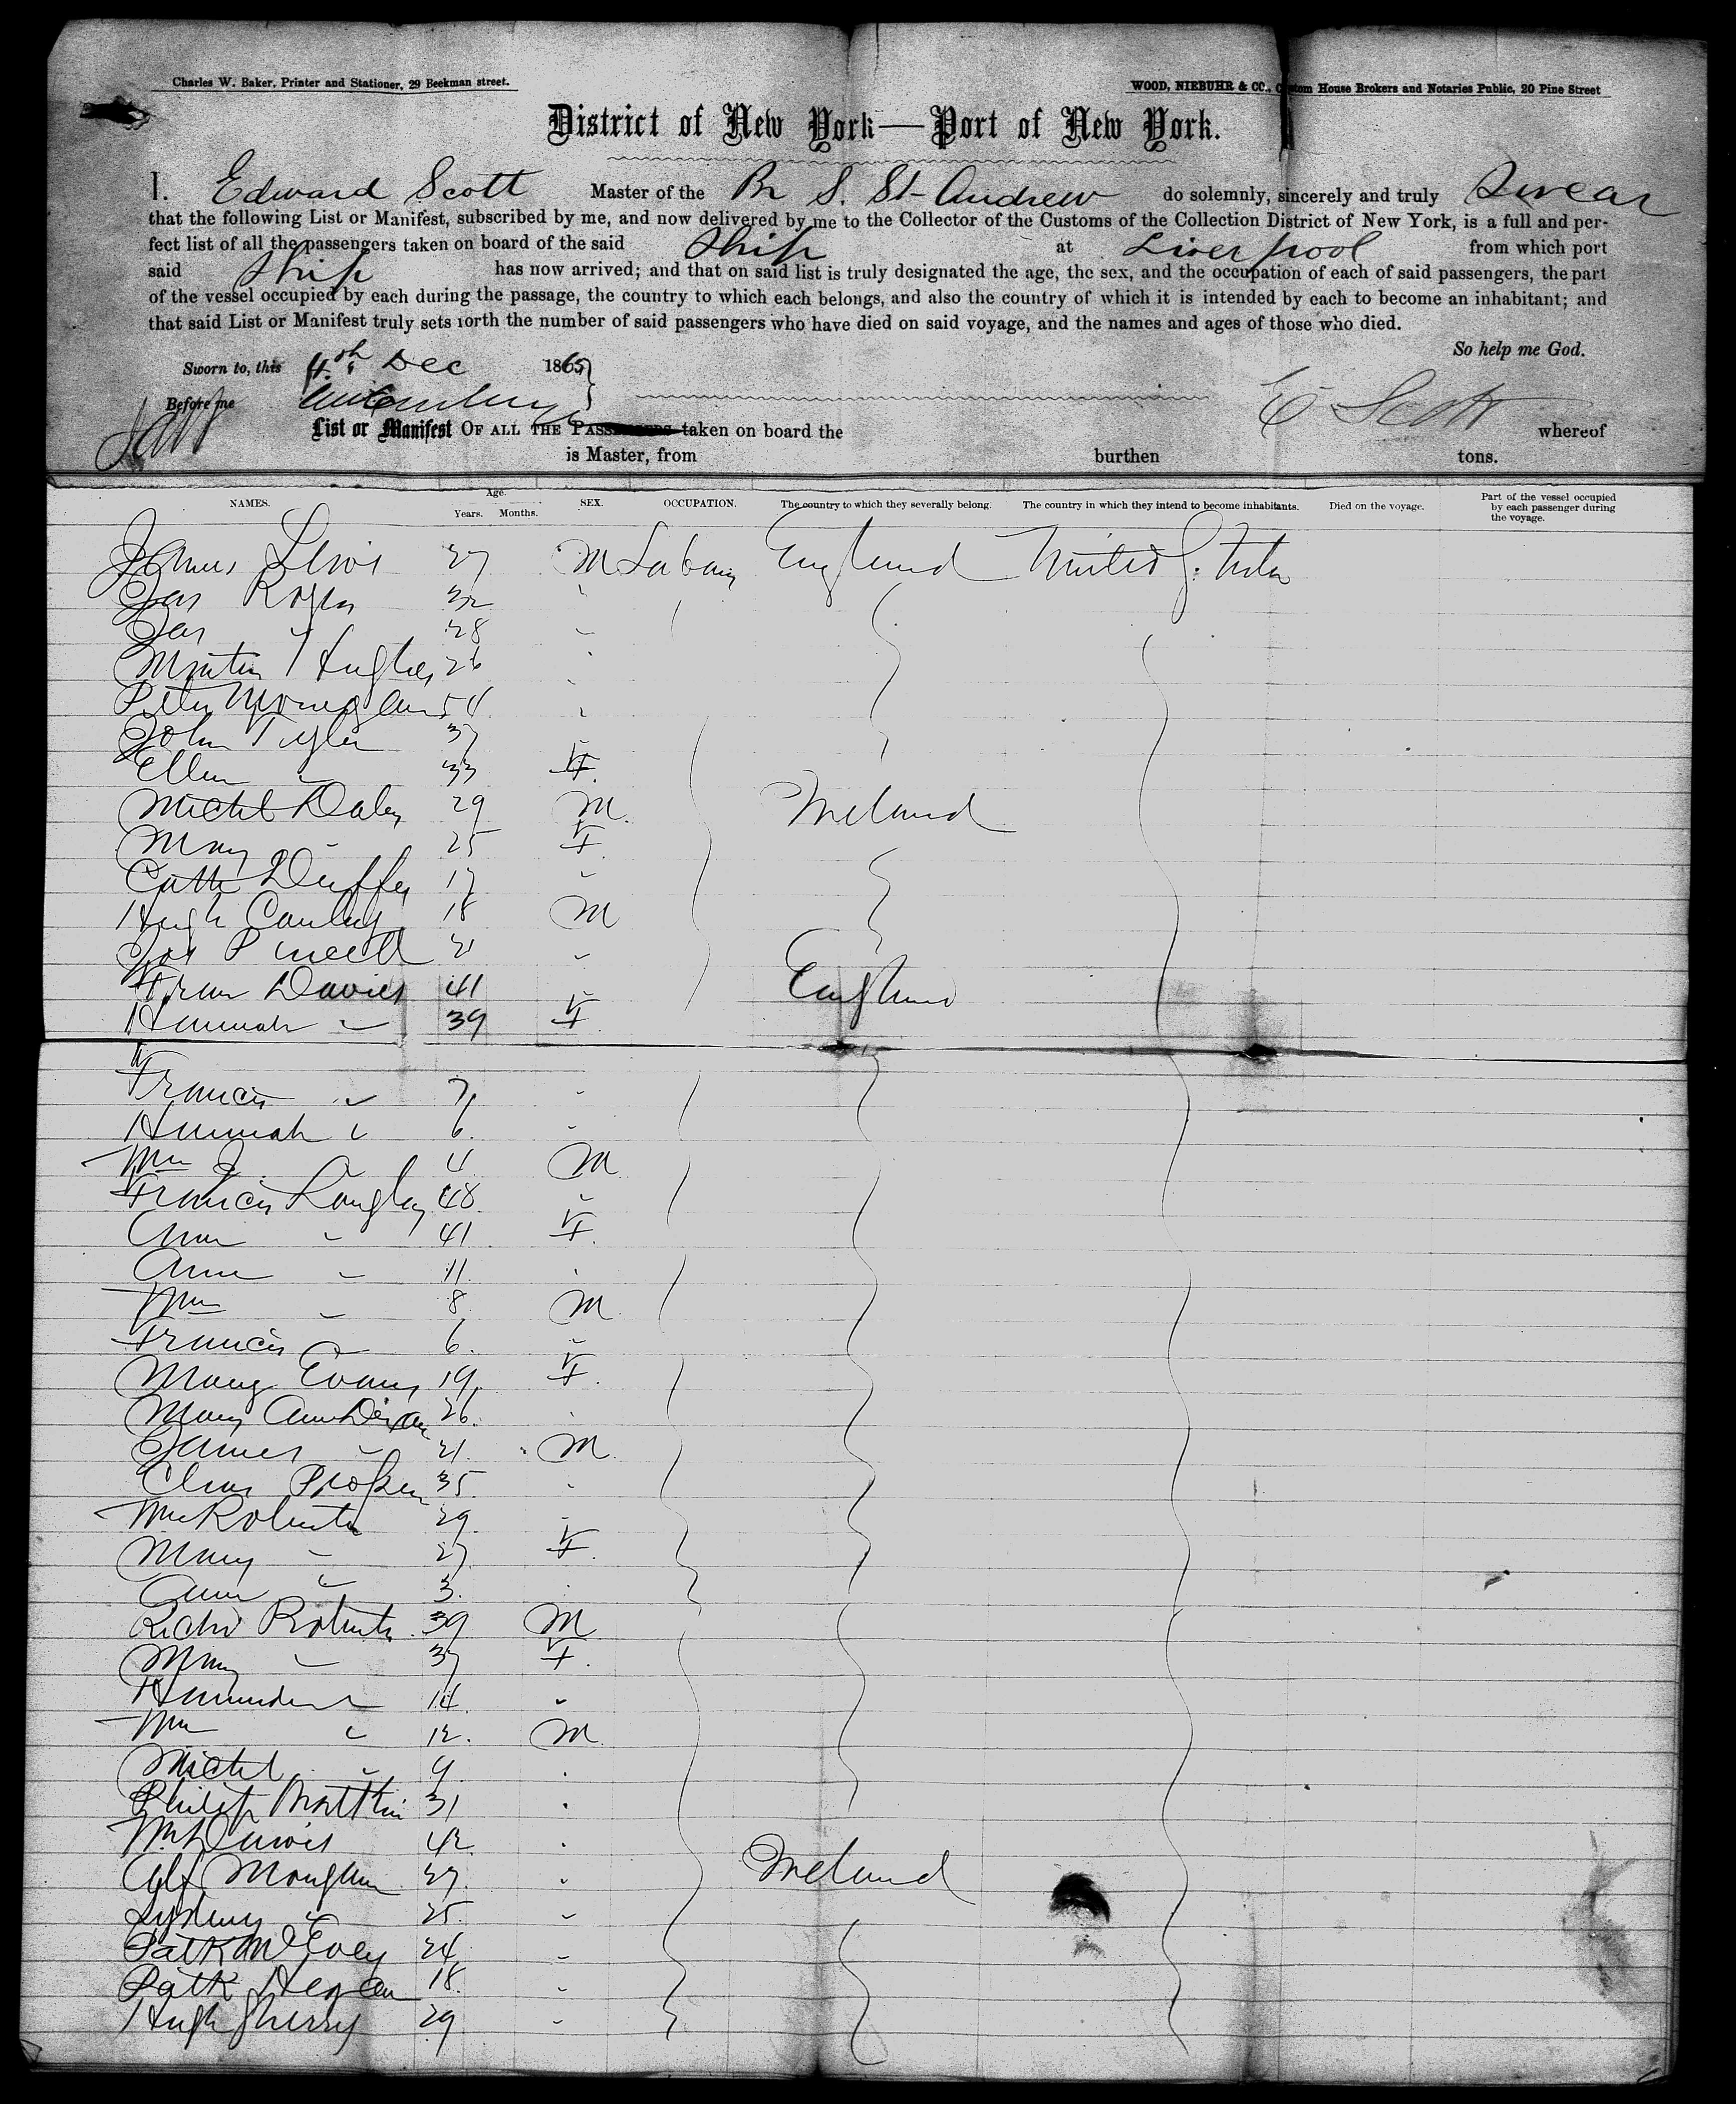 Charles W. Baker, Printer and Stationer, 29 Beekman street. WOOD, NIEBUHR & CO., Custom House Brokers and Notaries Public, 20 Pine Street
District of New York—Port of New York.
I. Edward Scott Master of the Br S. St Andrew do solemnly, sincerely and truly Swear
that the following List or Manifest, subscribed by me, and now delivered by me to the Collector of the Customs of the Collection District of New York, is a full and per-
fect list of all the passengers taken on board of the said Ship at Liverpool from which port
said Ship has now arrived; and that on said list is truly designated the age, the sex, and the occupation of each of said passengers, the part
of the vessel occupied by each during the passage, the country to which each belongs, and also the country of which it is intended by each to become an inhabitant; and
that said List or Manifest truly sets forth the number of said passengers who have died on said voyage, and the names and ages of those who died.
So help me God.
Sworn to, this 4th Dec 1865
Before me E Scott
List or Manifest OF ALL THE PASSENGERS taken on board the whereof
is Master, from burthen tons.
NAMES. Age. Years. Months. SEX. OCCUPATION. The country to which they severally belong. The country in which they intend to become inhabitants. Died on the voyage. Part of the vessel occupied by each passenger during the voyage.
James Lewis 27 M England United States
Jas 32
Jas 28
Martin Hughes 26
Peter 54
John 37
Ellen 33 F
Michl Daley 29 M Ireland
Mary 25 F
Cath Duffey 17
Hugh 18 M
Jas Purcell 21
Fran Davies 41 England
Hannah 39 F
Francis 7
Hannah 6
Wm J. 4 M
Francis Langley 48
Ann 41 F
Anne 11
Wm 8 M
Francis 6
Mary Evans 19 F
Mary Ann Dixon 26
James 21 M
Chas 35
Wm Roberts 29
Mary 27 F
Ann 3
Richd Roberts 39 M
Mary 37 F
14
Wm 12 M
Michl 9
Philip 31
Wm Davis 42
Alf Morgan 27 Ireland
Sydney 25
Patk McEvoy 24
Patk 18
Hugh Sherry 29